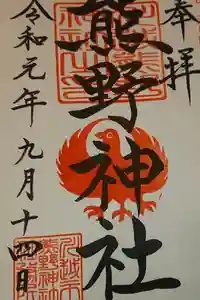 奉拝
熊野神社
令和元年九月十四日